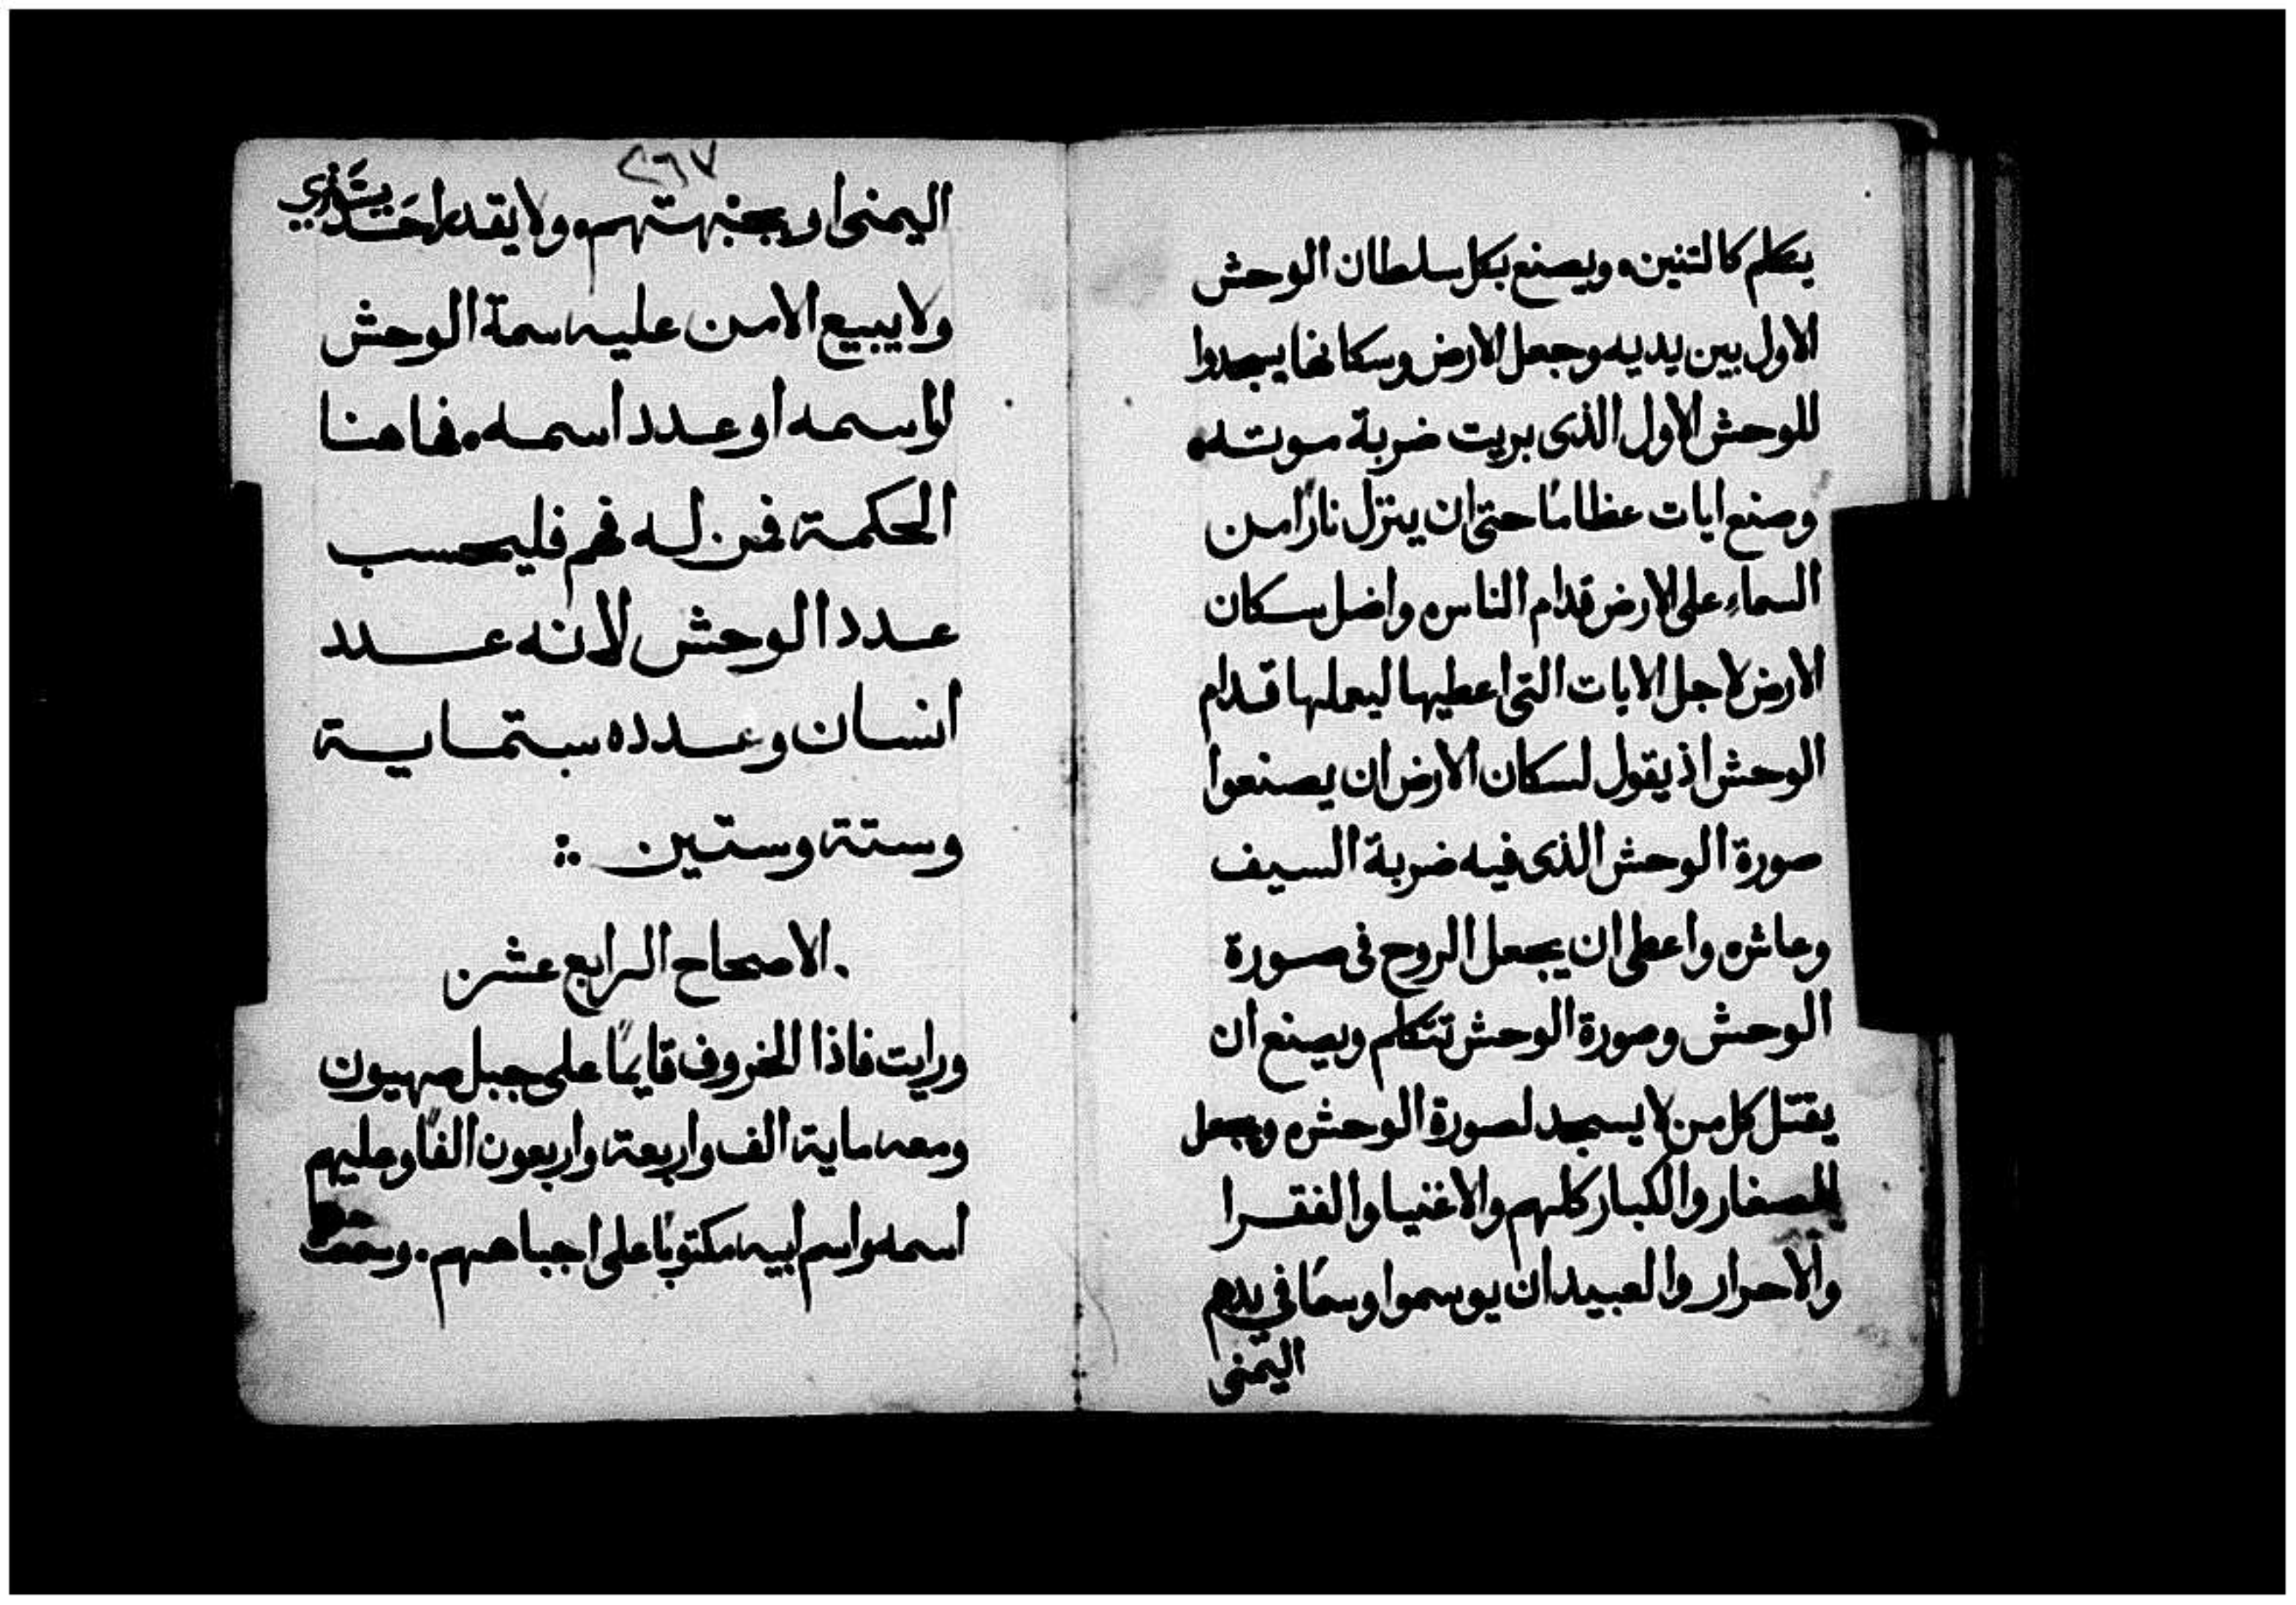 يتكلم كالتنين. ويصنع بكل سلطان الوحش
الاول بين يديه وجعل الارض وسكانها يسجدوا
للوحش الاول الذى بريت ضربة موته.
وصنع ايات عظامًا حتى ان ينزل نارًا من
السماءِ على الارض قدام الناس. واضل سكان
الارض لاجل الايات التى اعطيها ليعملها قدام
الوحش اذ يقول لسكان الارض ان يصنعوا
صورة الوحش الذى فيه ضربة السيف
وعاش. واعطى ان يجعل الروح فى صورة
الوحش وصورة الوحش تتكلم ويصنع ان
يقتل كل من لا يسجد لصورة الوحش. ويجعل
للصغار والكبار كلهم والاغنيا والفقرا
والاحرار والعبيد ان يوسموا وسمًا في يدهم
اليمنى
٢٦٧
اليمنى او بجبهتهم. ولا يقدر احَد يشَتري
ولا يبيع الا من عليه سمة الوحش
او اسمه او عدد اسمه. فهاهنا
الحكمة فمن له فهم فليحسب
عدد الوحش لانه عدد
انسان وعدده ستماية
وستة وستين ..:
. الاصحاح الرابع عشر
ورايت فاذا الخروف قايمًا على جبل صهيون
ومعه ماية الف واربعة واربعون الفًا وعليهم
اسمه واسم ابيه مكتوبًا على اجباههم. وسمعت